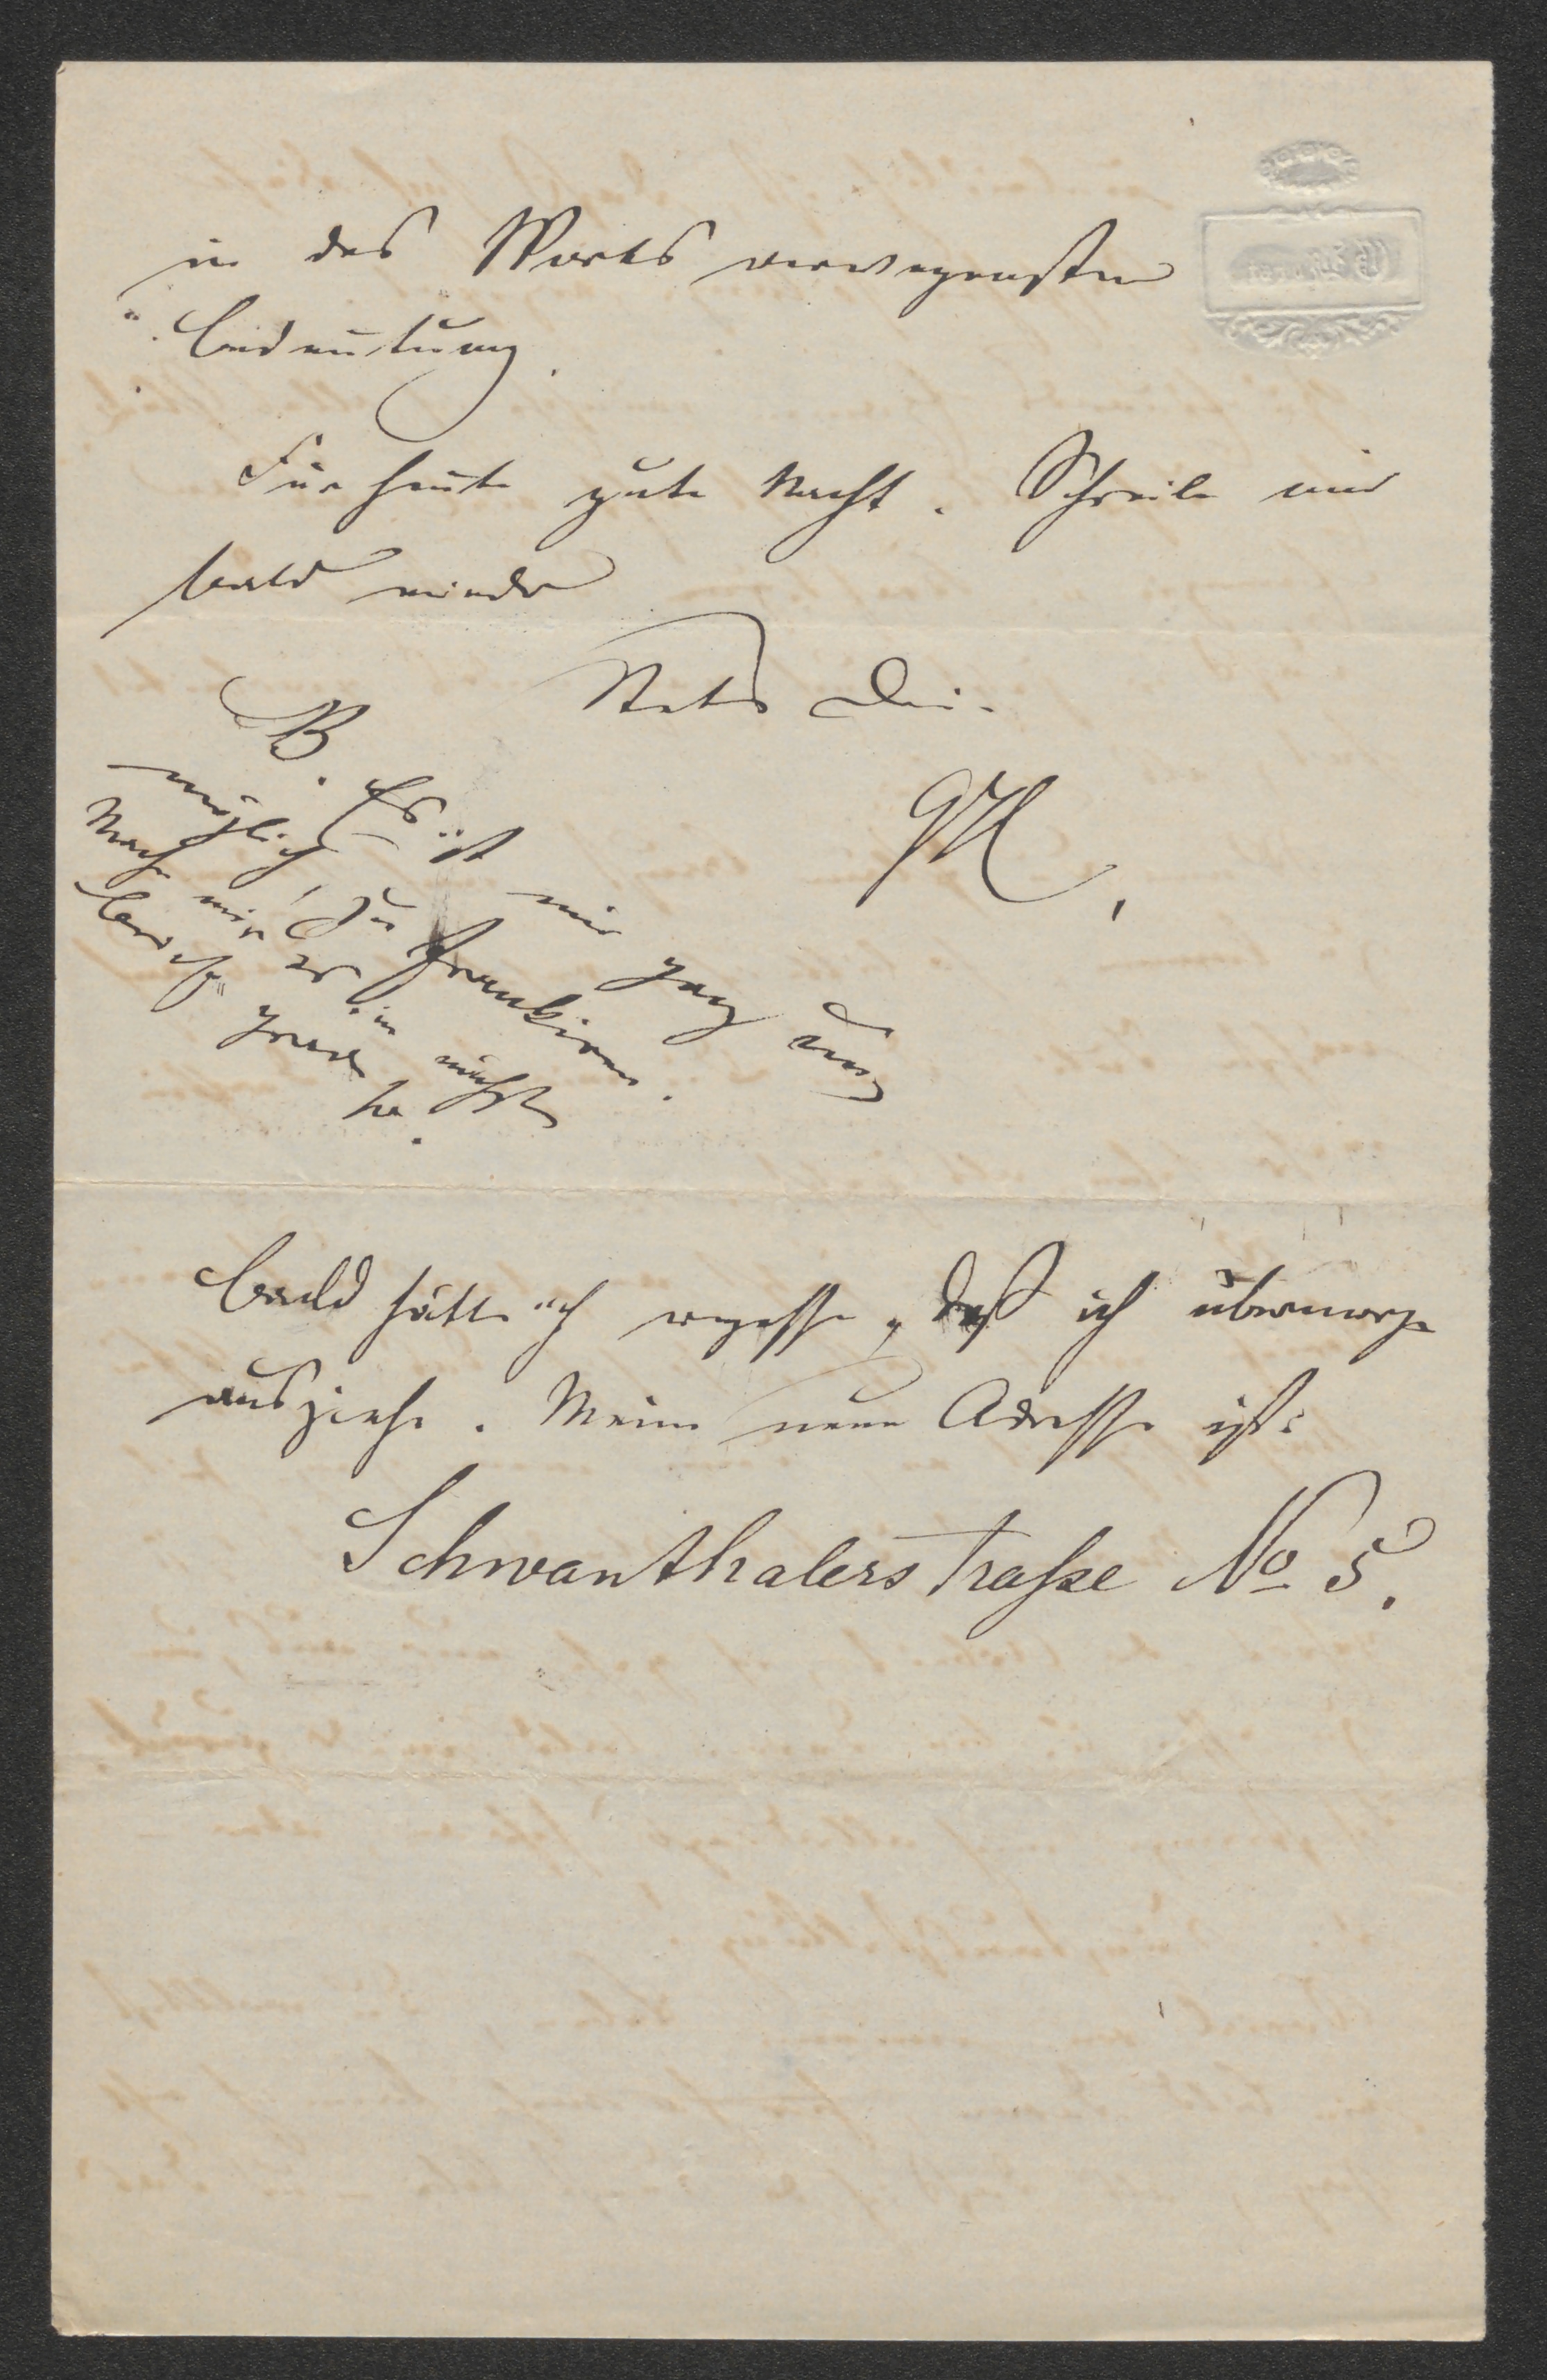 in des Worts verwegenster
Bedeutung.
Für heute gute Nacht. Schreibe mir
bald wieder
Stets Dein
M.
NB. Es ist mir ganz un
möglich, zu frankiren.
Mach mir es im nächsten
bald hätte ich vergessen, daß ich übermorgen
ausziehe. Meine neue Adresse ist:
Schwanthalerstraße No 5.